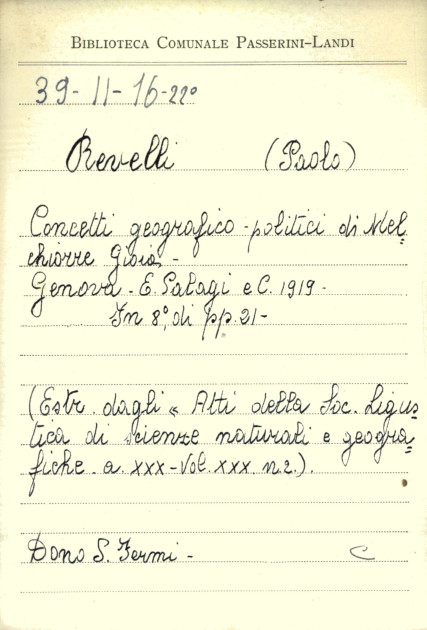 BIBLIOTECA COMUNALE PASSERINI-LANDI
39-11-16-22°
Revelli (Paolo)
Concetti geografico-politici di Mel=
chiorre Gioia. -
Genova - E. Palagi e C. 1919 -
In 8°, di pp. 21 -
(Estr. dagli « Atti della Soc. Ligus=
tica di scienze naturali e geogra=
fiche. a. XXX - Vol. XXX. n. 2.).
Dono S. Fermi - C